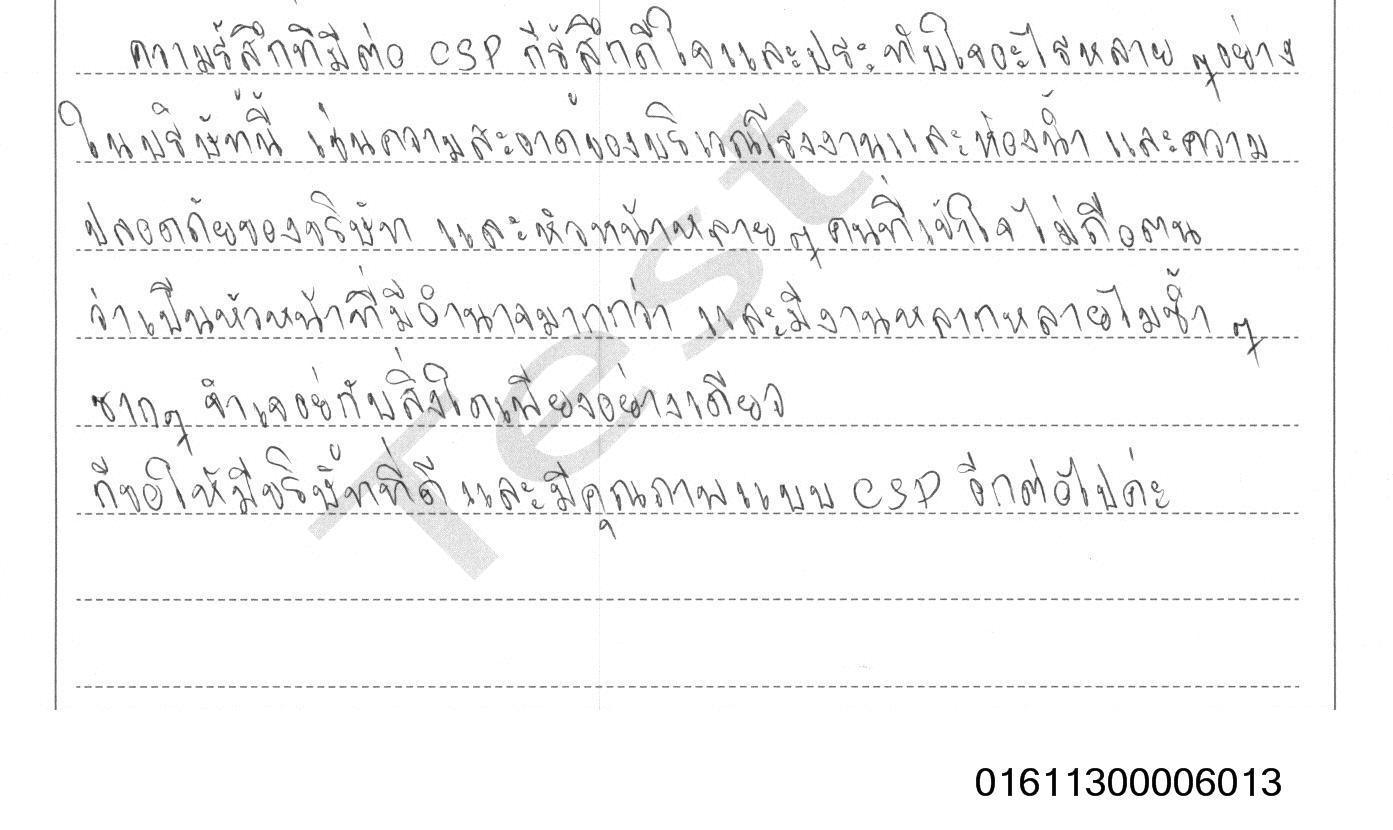 ความรู้สึกที่มีต่อ CSP ก็รู้สึกดีใจและประทับใจอะไรหลาย ๆ อย่าง
ในบริษัทนี้ เช่นความสะอาดของบริเวณโรงงานและห้องน้ำ และความ
ปลอดภัยของบริษัท และหัวหน้าหลาย ๆ คนที่เข้าใจ ไม่ถือตน
ว่าเป็นหัวหน้าที่มีอำนาจมากกว่า และมีงานหลากหลายไม่ซ้ำ ๆ
ซากๆ จำเจอยู่กับสิ่งใดเพียงอย่างเดียว
ก็ขอให้มีบริษัทที่ดี และมีคุณภาพแบบ CSP อีกต่อไปค่ะ
Test
01611300006013